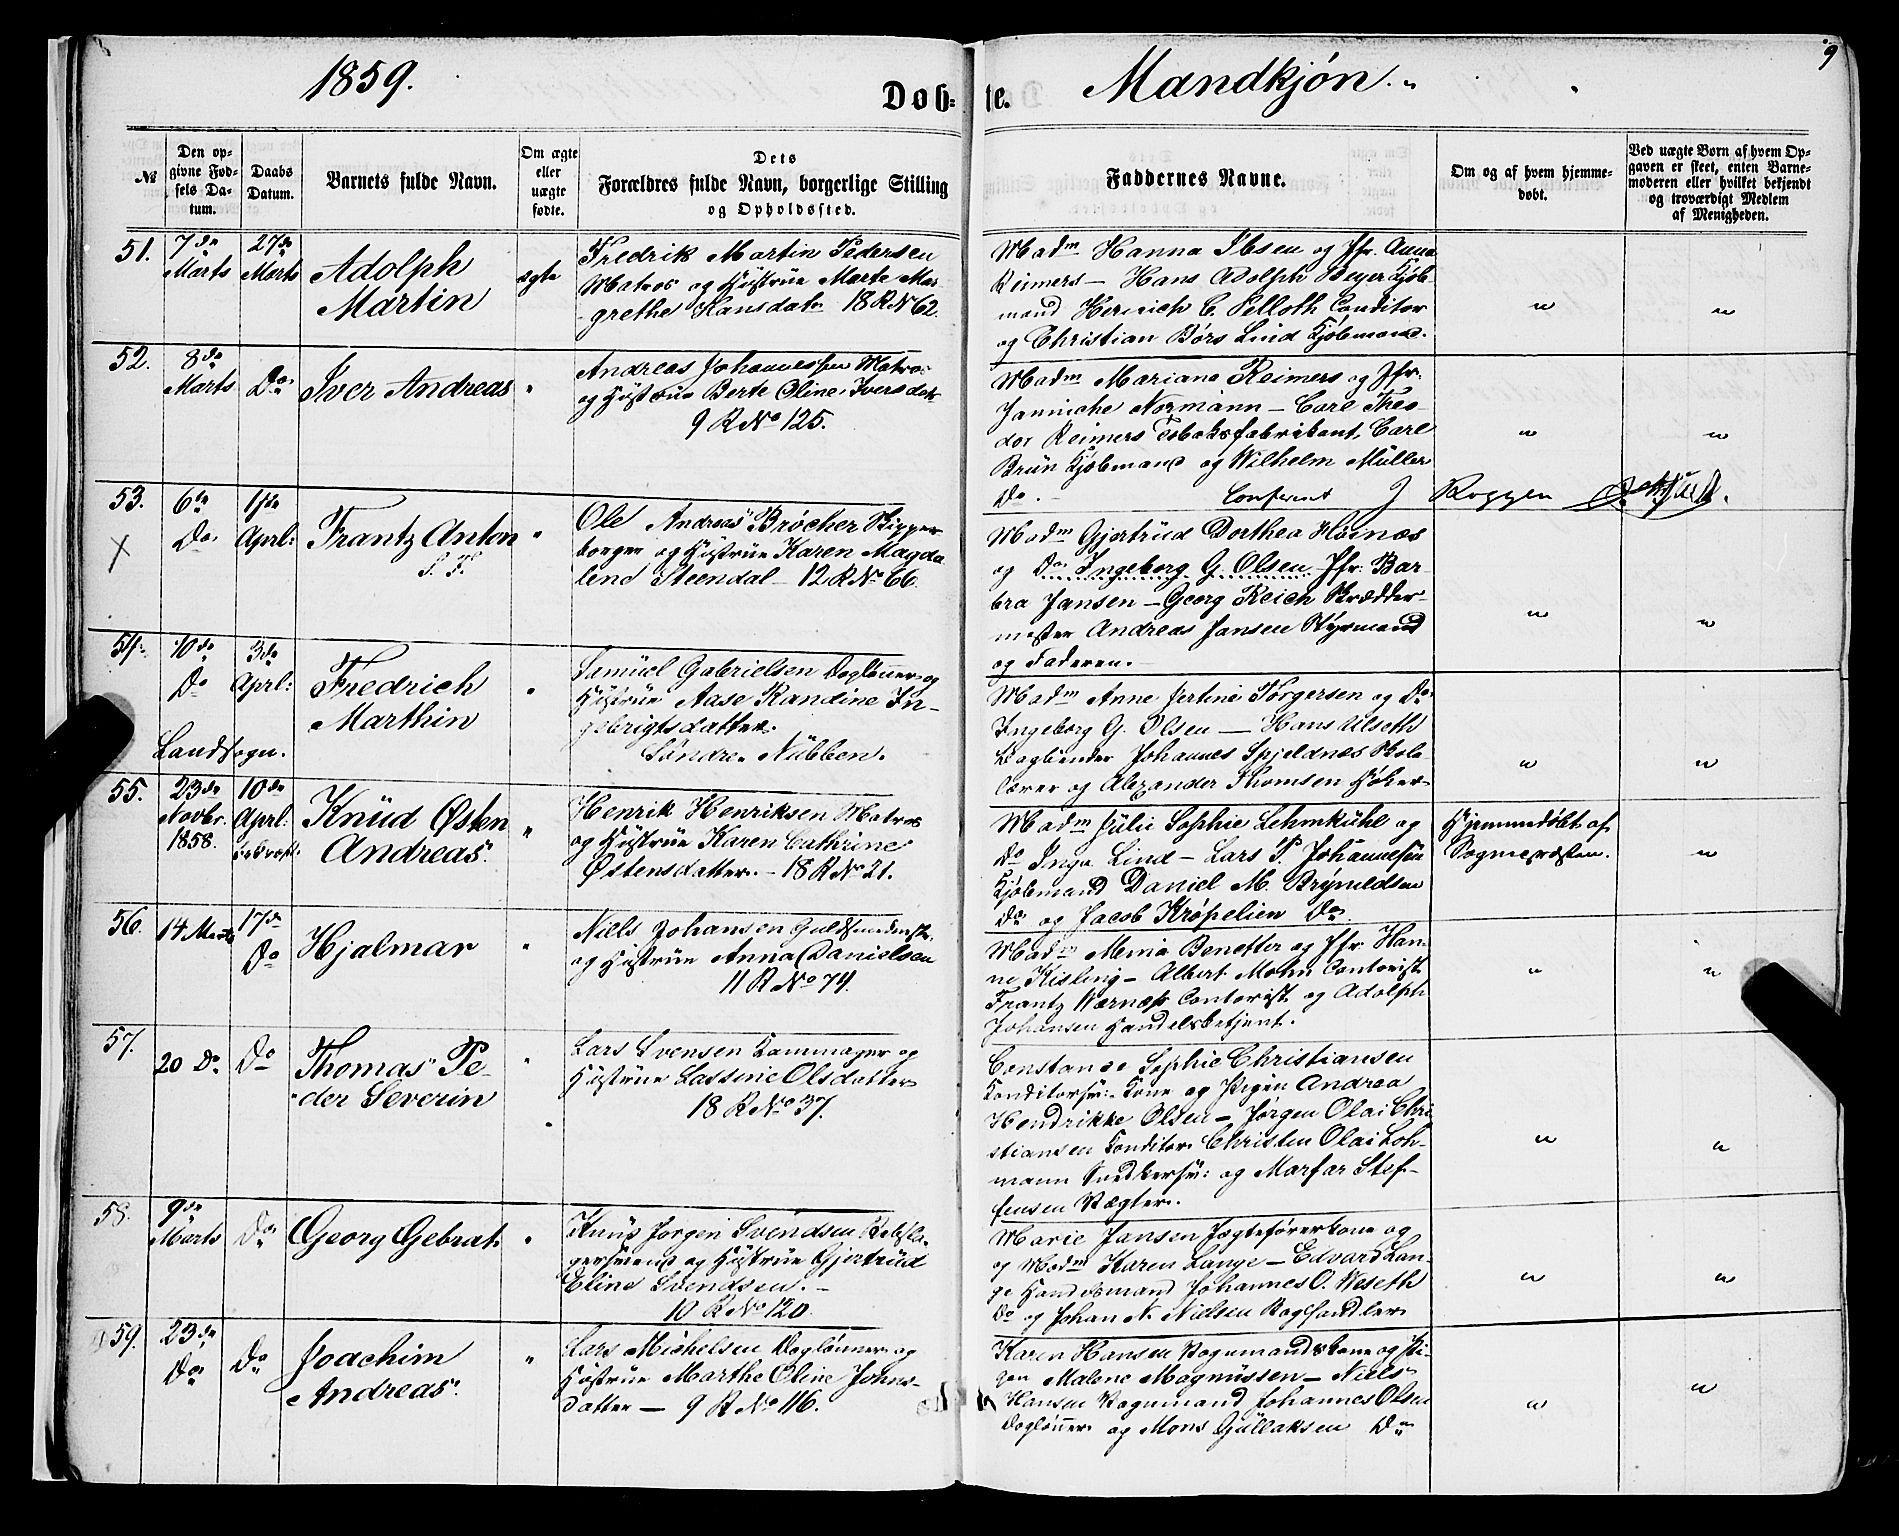 1859.
Døb-te.
Mandkjón.
9
№
Den op-
givne Fød-
sels Da-
tum.
Daabs
Datum.
Barnets fulde Navn.
Om ægte
eller
uægte
fødte.
Dets
Forældres fulde Navn, borgerlige Stilling
og Opholdssted.
Faddernes Navne.
Om og af hvem hjemme-
døbt.
Ved uægte Børn af hvem Op-
gaven er skeet, enten Barne-
moderen eller hvilket bekjendt
og troværdigt Medlem
af Menigheden.
51.
7de
Marts
27de
Marts
Adolph
Martin
ægte
Fredrik Martin Pedersen
Matros og Hustrue Marte Mar-
grethe Hansdatr 18 R No 62.
Madm Hanna Ibsen og Jfr. Anna
Reimers - Hans Adolph Beyer Kjøb-
mand Henrich C. Pelloth Conditor
og Christian Börs Lind Kjøbmand.
52.
8de
Marts
Do
Iver Andreas
"
Andreas Johannessen Matros
og Hustrue Berte Oline Iversdatr
9 R No 125.
Madm Mariane Reimers og Jfr.
Jannicke Normann - Carl Theo-
dor Reimers Tobaksfabrikant, Carl
Brün Kjøbmand og Wilhelm Müller
Do. -
Confereret J Roggen
53.
6te
Do
1ste
Aprl:
Frantz Anton
"
Ole Andreas Bröcher Skipper
borger og Hustrue Karen Magda
lene Steendal - 12 R No 66.
Madm Gjertrüd Dorthea Höinæs
og Do Ingeborg G. Olsen Jfr. Bar-
bra Jansen - Georg Reich Skrædder-
mester Andreas Jansen Styrmand
og Faderen. -
54.
10de
Do
3de
Aprl:
Fredrich
Marthin
"
Landsogn.
Samüel Gabrielsen Daglönner og
Hustrue Aase Randine In-
gebrigtsdatter.
Söndre Nübben.
Madm Anne Jertine Torgersen og Do
Ingeborg G. Olsen - Hans Ulseth
Bogbinder Johannes Spjeldnæs Skole
lærer og Alexander Thomsen Höker
55.
23de
Novbr.
1858.
10de
Aprl:
Knüd Østen
Andreas.
"
Henrik Henriksen Matros
og Hustrue Karen Cathrine
Østensdatter. - 18 R No 21.
Madm Jülie Sophie Lehmkühl og
Do Inga Lind - Lars P. Johannesen
Kjøbmand Daniel M. Brynildsen
Do og Jacob Kröpelien Do
Hjemmedøbt af
Sognepræsten.
56.
14 Marts
17de
Do
Hjalmar
"
Niels Johansen Guldsmedmstr.
og Hustrue Anna Danielsen
11 R No 74.
Madm Menia Benetter og Jfr. Han-
ne Kisling - Albert Mohn Contorist
Frantz Wernæss Contorist og Adolph
Johansen Handelsbetjent.
57.
20 Do
Do
Thomas Pe-
der Severin
"
Lars Svensen Kammager og
Hustrue Lassine Olsdatter
18 R No 37.
Constance Sophie Christiansen
Konditorsv: Kone og Pigen Andrea
Hendrikke Olsen - Jörgen Olai Chri-
stiansen Konditor Christen Olai Loh-
mann Snedkersv: og Marfar Stef-
fensen Vægter.
58.
9de
Marts
Do
Georg Gebrat
"
Knüs Jörgen Svendsen Rebsla-
gersvend og Hustrue Gjertrüd
Eline Svendsen. -
10 R No 120
Marie Jansen Jægtefórerkone og
og Madm Karen Lange - Edvard Lan-
ge Handelsmand Johannes O. Weseth
Do og Johan N. Nielsen Boghandler
59.
23de
Do
Do
Joachim
Andreas.
"
Lars Michelsen Daglönner og
Hustrue Marthe Oline Johns-
datter - 9 R No 116.
Karen Hansen Vognmandskone og Pi-
gen Malene Magnüssen - Niels
Hansen Vognmand Johannes Olsen
Daglönner og Mons Güllaksen Do